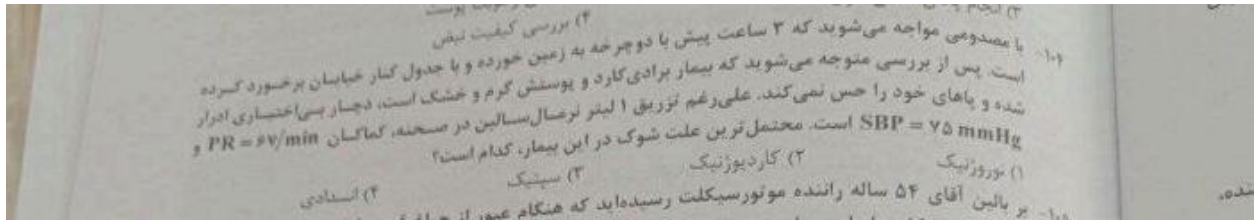 ۳) انجام
پوست
۴) بررسی کیفیت نبض
۱۰۴- با مصدومی مواجه می‌شوید که ۳ ساعت پیش با دوچرخه به زمین خورده و با جدول کنار خیابان برخورد کرده
است. پس از بررسی متوجه می‌شوید که بیمار برادی‌کارد و پوستش گرم و خشک است، دچار بی‌اختیاری ادرار
شده و پاهای خود را حس نمی‌کند. علی‌رغم تزریق ۱ لیتر نرمال‌سالین در صحنه، کماکان PR = ۶۷/min و
SBP = ۷۵ mmHg است. محتمل‌ترین علت شوک در این بیمار، کدام است؟
۱) نوروژنیک ۲) کاردیوژنیک ۳) سپتیک ۴) انسدادی
بر بالین آقای ۵۴ ساله راننده موتورسیکلت رسیده‌اید که هنگام عبور از